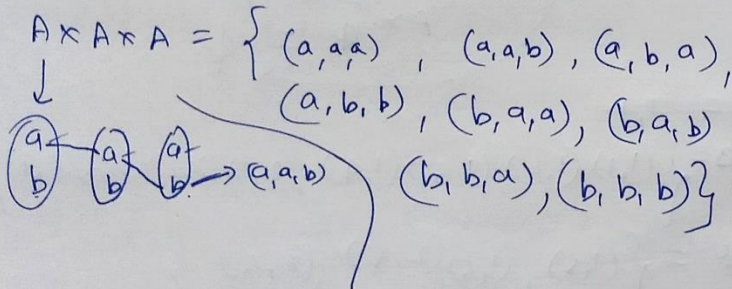 A × A × A = { (a,a,a) , (a,a,b) , (a,b,a) ,
(a, b, b) , (b, a, a) , (b, a, b)
(b, b, a) , (b, b, b) }
a a a
b b b → (a,a,b)